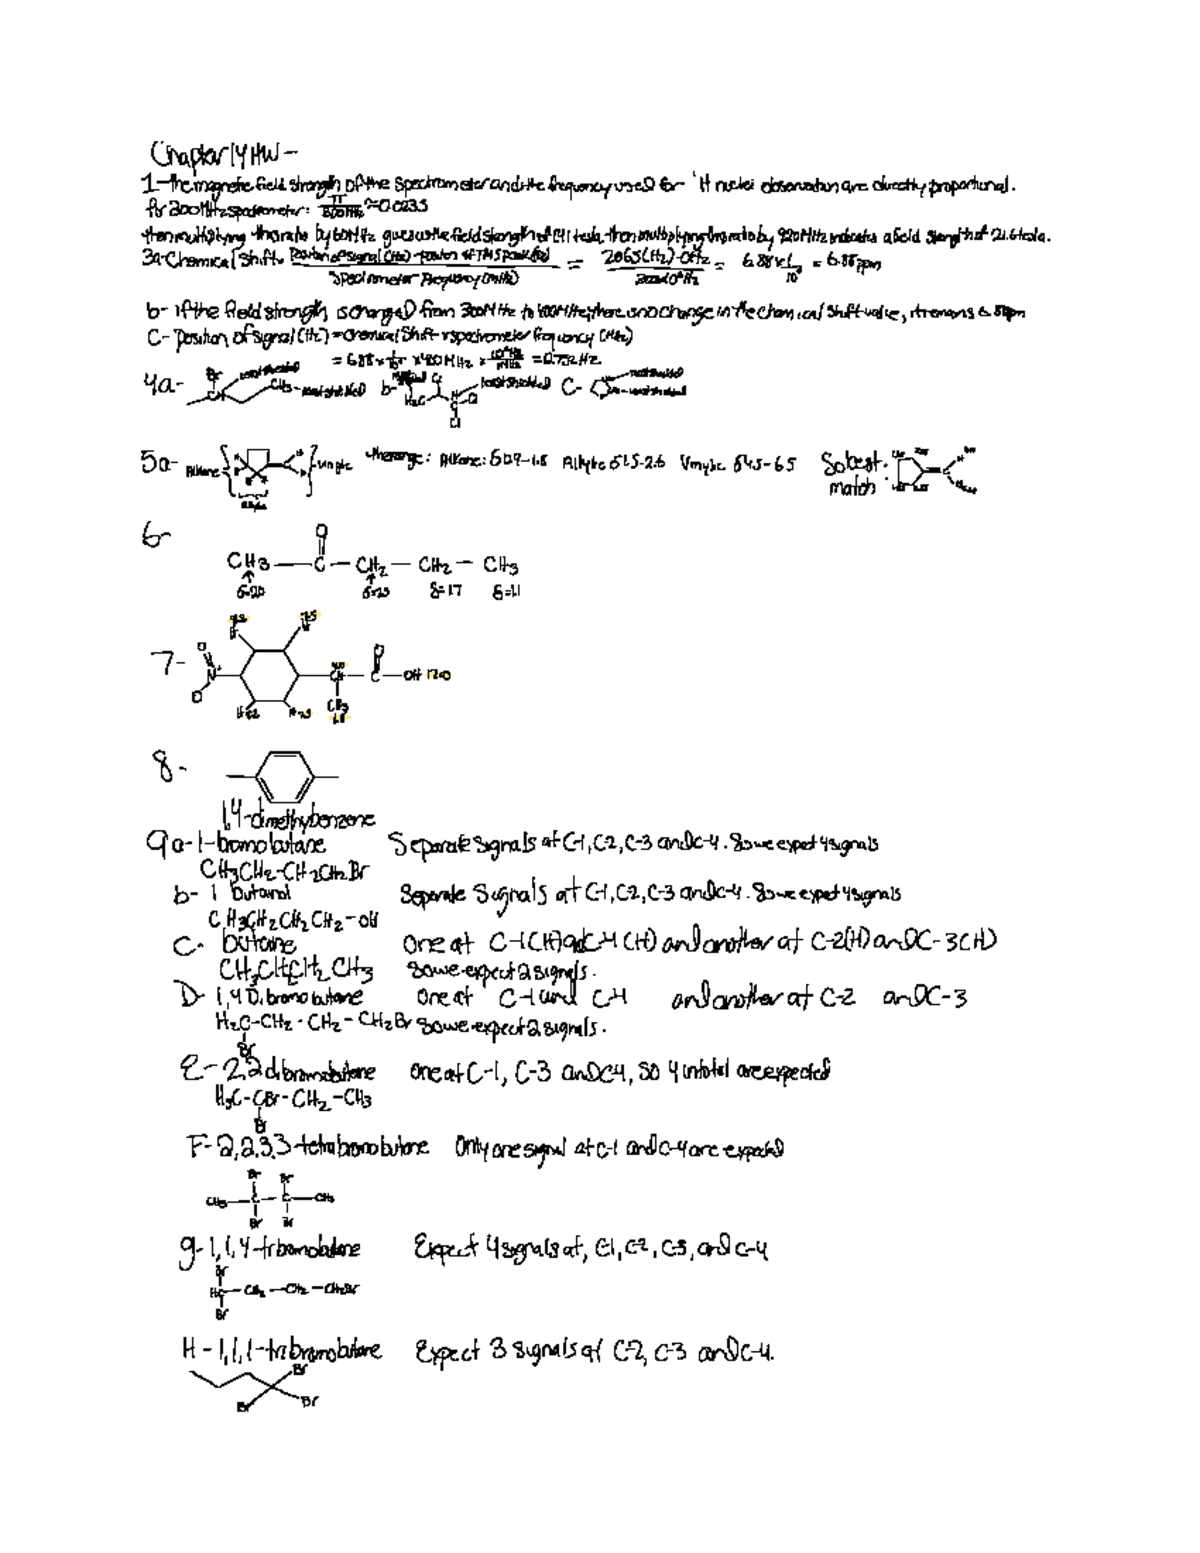 Chapter 14 HW -
1- the magnetic field strength of the spectrometer and the frequency used for ¹H nuclei observation are directly proportional.
for 300MHz spectrometer: ≈0.0235
then multiplying by 60MHz gives us the field strength of 1.41 tesla. then multiplying by 920MHz indicates a field strength of 21.6 tesla.
3a- Chemical Shift = 2065(Hz)-0Hz = 6.88 x = 6.88ppm
Spectrometer frequency (MHz)
b- if the field strength is changed from 300MHz to 400MHz, there is no change in the chemical shift value, it remains 6.88ppm
C- Position of signal (Hz) = chemical shift x spectrometer frequency (MHz)
4a- Br CH CH3 b- H3C Cl C Cl Cl C-
5a- Alkane Vinylic Alkane: δ0.9-1.8 Allylic δ1.5-2.6 Vinylic δ4.5-6.5 So best match:
6-
O
CH3 - C - CH2 - CH2 - CH3
δ=1.7
7- O N+ O CH CH3 O C - OH 12.0
8-
1,4-dimethylbenzene
9a-1-bromobutane Separate signals at C-1, C-2, C-3 and C-4. So we expect 4 signals
CH3CH2-CH2CH2Br
b- 1 butanol Separate signals at C-1, C-2, C-3 and C-4. So we expect 4 signals
CH3CH2CH2CH2-OH
C- butane One at C-1(H) and C-4(H) and another at C-2(H) and C-3(H)
So we expect 2 signals.
D- 1,4 Dibromobutane One at C-1 and C-4 and another at C-2 and C-3
H2C-CH2-CH2-CH2Br So we expect 2 signals.
Br
E- 2,2 dibromobutane one at C-1, C-3 and C-4, so 4 in total are expected
H3C-CBr-CH2-CH3
Br
F- 2,2,3,3-tetrabromobutane Only one signal at C-1 and C-4 are expected
Br Br
CH3-C-C-CH3
Br Br
g- 1,1,4-tribromobutane Expect 4 signals at, C-1, C-2, C-3, and C-4
Br
HC-CH2-CH2-CH2Br
Br
H - 1,1,1-tribromobutane Expect 3 signals at C-2, C-3 and C-4.
Br
Br Br